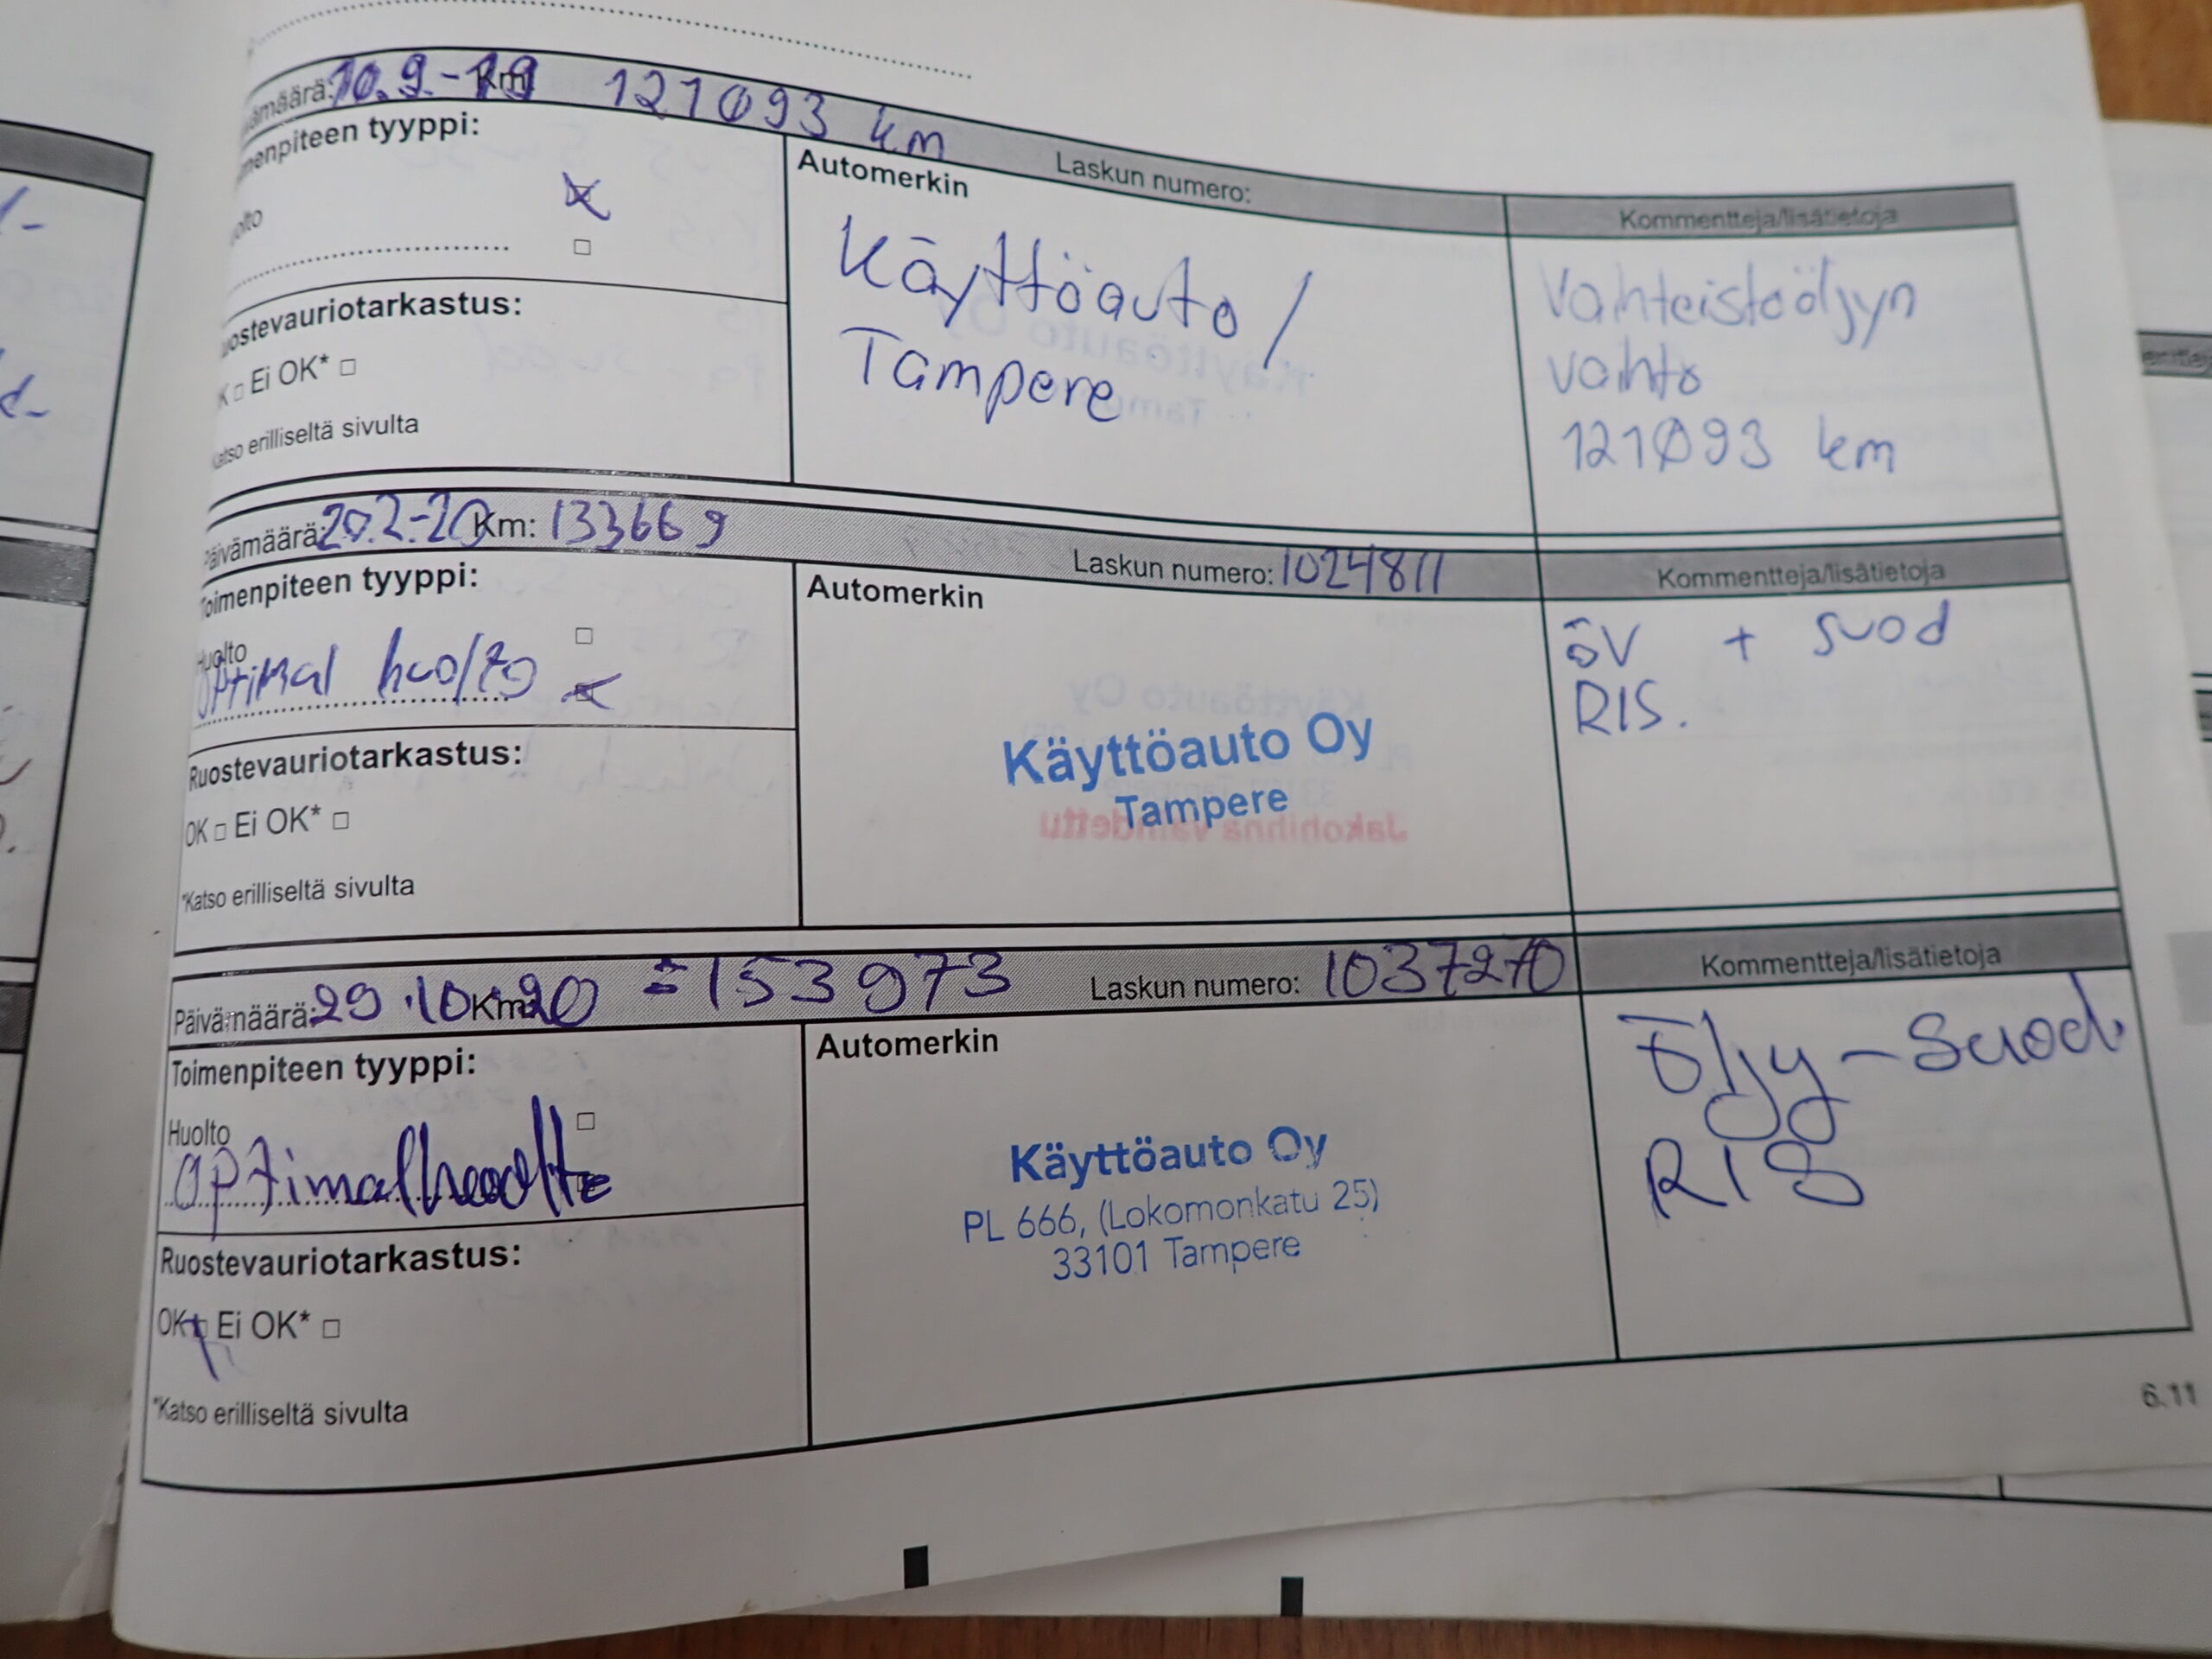 10.9.-19 Km 121093 km Laskun numero:
Toimenpiteen tyyppi:
Automerkin
Kommentteja/lisätietoja
Käyttöauto /
Tampere
Vaihteistoöljyn
vaihto
121093 km
Ruostevauriotarkastus:
Ei OK*
Katso erilliseltä sivulta
Päivämäärä: 20.2-20 Km: 133669 Laskun numero: 1024811 Kommentteja/lisätietoja
Toimenpiteen tyyppi:
Automerkin
Huolto
Optimal huolto
öV + suod
RIS.
Käyttöauto Oy
Tampere
Ruostevauriotarkastus:
OK Ei OK*
*Katso erilliseltä sivulta
Päivämäärä: 29.10-20 Km: 153973 Laskun numero: 1037270 Kommentteja/lisätietoja
Toimenpiteen tyyppi:
Automerkin
Huolto
Optimalhuolto
Öljy-Suod.
RIS
Käyttöauto Oy
PL 666, (Lokomonkatu 25)
33101 Tampere
Ruostevauriotarkastus:
OK Ei OK*
*Katso erilliseltä sivulta
6.11